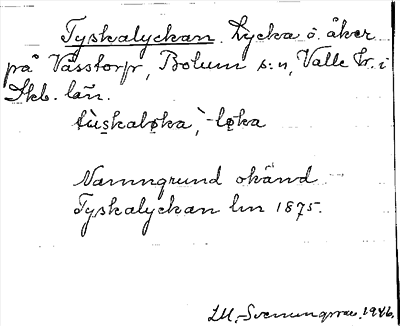 Tyskalyckan. Lycka o. åker
på Våsstorp, Bolum s:n, Valle hr. i
Skb. län.
tùskaløka, -løka
Namngrund okänd
Tyskalyckan lm 1875.
1946.